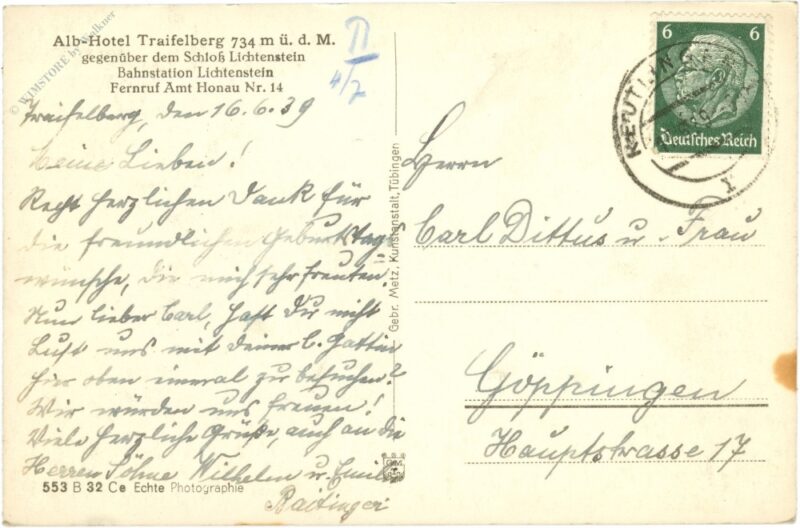 Alb-Hotel Traifelberg 734 m ü. d. M.
gegenüber dem Schloß Lichtenstein
Bahnstation Lichtenstein
Fernruf Amt Honau Nr. 14
Traifelberg, den 16.6.39
Meine Lieben!
Recht herzlichen Dank für
die freundlichen Geburtstags=
wünsche, die mich sehr freuten.
Nun lieber Carl, hast Du nicht
Lust uns mit deiner l. Gattin
hier oben einmal zu besuchen?
Wir würden uns freuen!
Viele herzliche Grüße, auch an die
Herren Söhne Wilhelm u. Emilie
Baitinger
553 B 32 Ce Echte Photographie
Gebr. Metz, Kunstanstalt, Tübingen
6 6
Deutsches Reich
REUTLINGEN
Herrn
Carl Dittus u. Frau
Göppingen
Hauptstrasse 17
© WIMSTORE by Walkner